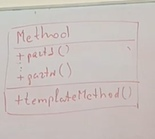 Method
+part1()
+partN()
+templateMethod()